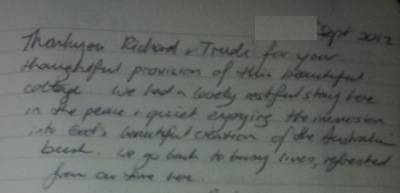 Sept 2012
Thankyou Richard & Trude for your
thoughtful provision of this beautiful
cottage. We had a lovely restful stay here
in the peace & quiet enjoying the immersion
into God's beautiful creation of the Australian
bush. We go back to busy lives, refreshed
from our time here.